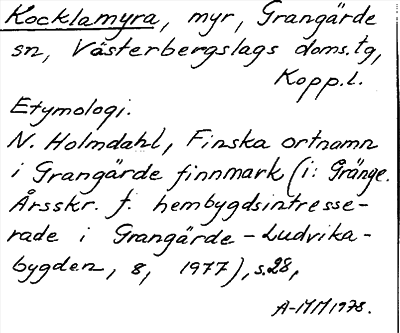 Kocklamyra, myr, Grangärde
sn, Västerbergslags doms.tg,
Kopp.l.
Etymologi.
N. Holmdahl, Finska ortnamn
i Grangärde finnmark (i: Gränge.
Årsskr. f. hembygdsintresse-
rade i Grangärde - Ludvika-
bygden, 8, 1977), s.28,
A-MM 1978.